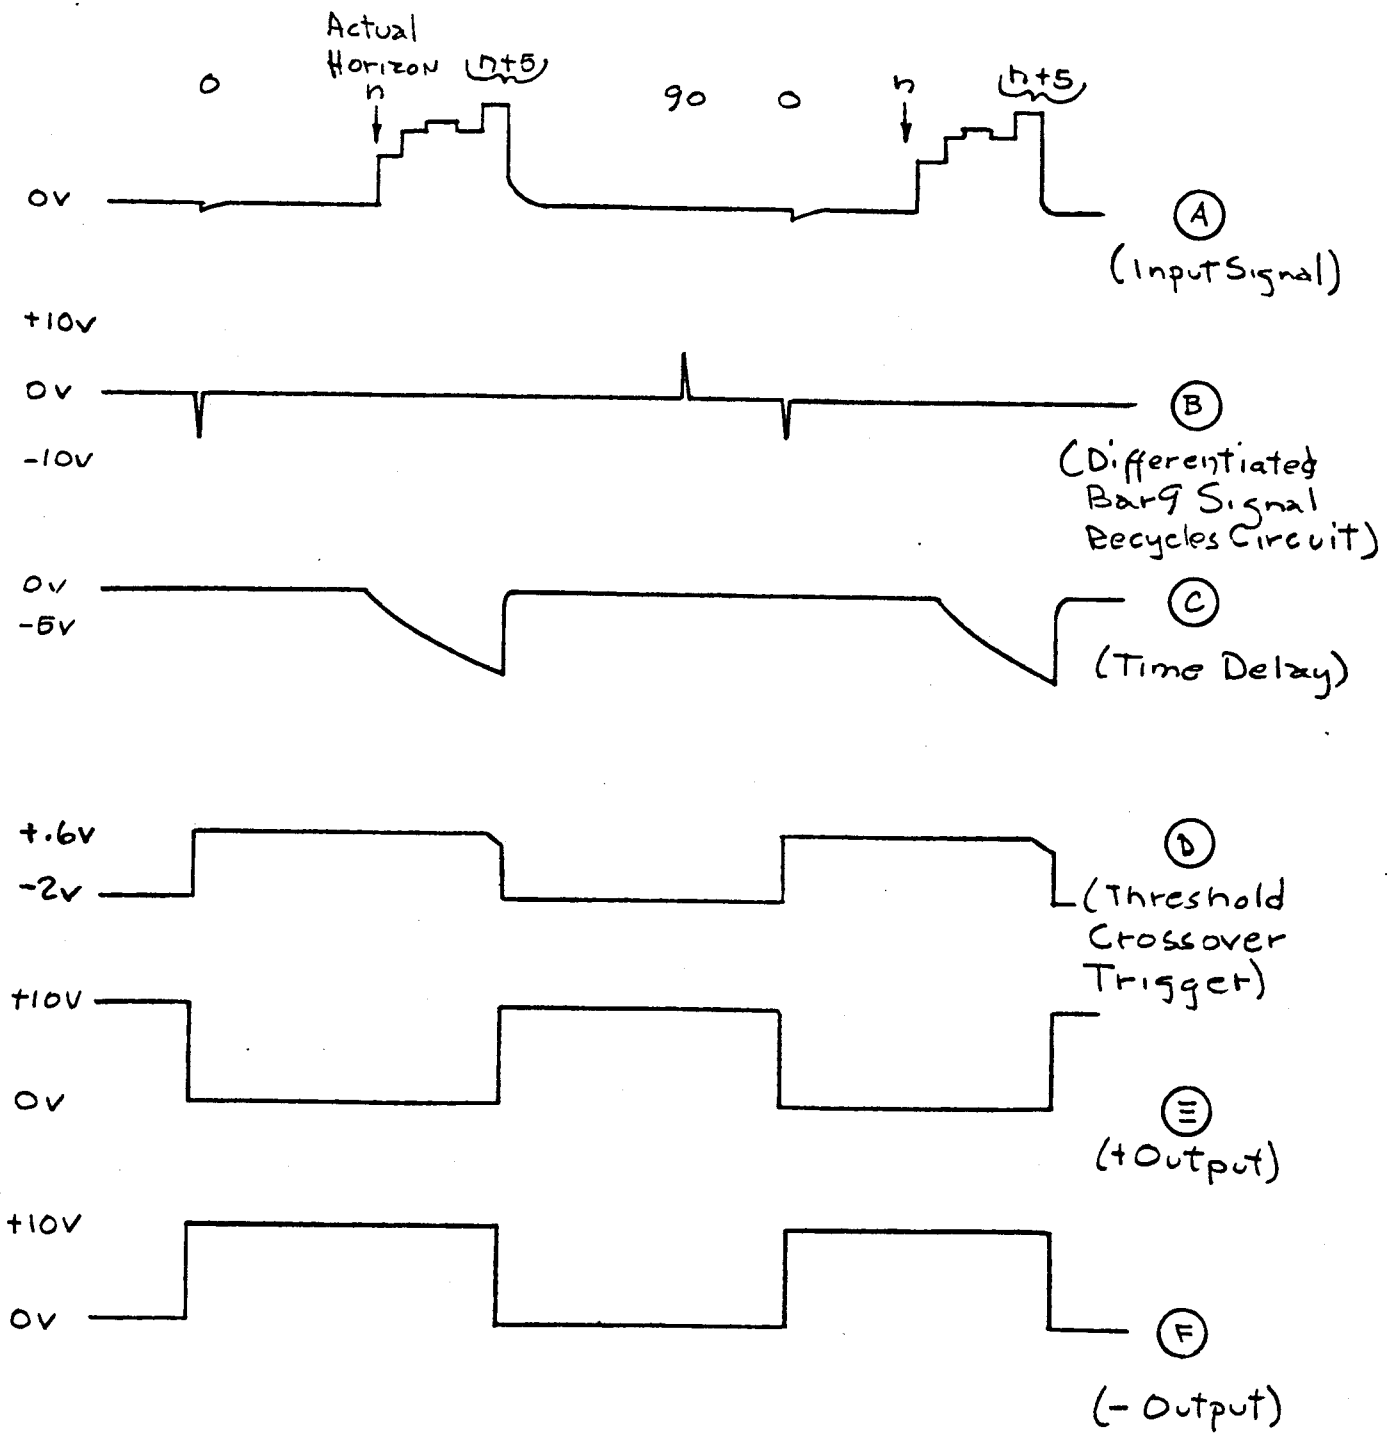 Actual
Horizon
n
n+5
0
90
0
n
n+5
0v
A
(Input Signal)
+10v
0v
-10v
B
(Differentiated
Bar 9 Signal
Recycles Circuit)
0v
-5v
C
(Time Delay)
+.6v
-2v
D
(Threshold
Crossover
Trigger)
+10v
0v
E
(+Output)
+10v
0v
F
(-Output)